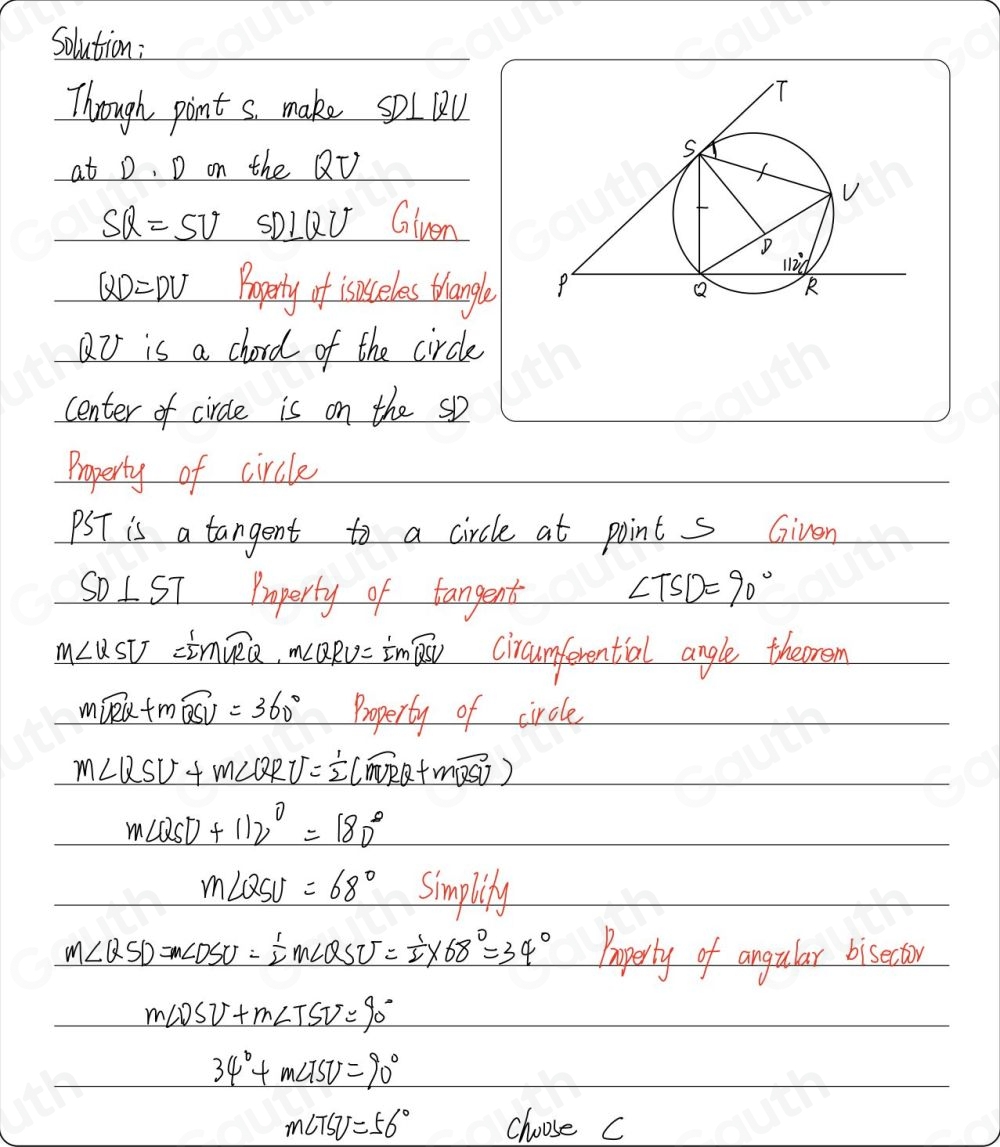 Solution:
Through point S. make SD⊥QU
at D, D on the QU
SQ=SU SD⊥QU Given
QD=DU Property of isosceles triangle
QU is a chord of the circle
center of circle is on the SD
Property of circle
PST is a tangent to a circle at point S Given
SD⊥ST Property of tangent ∠TSD=90°
m∠QSU =½m⌒URQ, m∠QRU=½m⌒QSU Circumferential angle theorem
m⌒URQ+m⌒QSU=360° Property of circle
m∠QSU+m∠QRU=½(m⌒URQ+m⌒QSU)
m∠QSU+112°=180°
m∠QSU=68° Simplify
m∠QSD=m∠DSU=½m∠QSU=½×68°=34° Property of angular bisector
m∠DSU+m∠TSU=90°
34°+m∠TSU=90°
m∠TSU=56° Choose C
T
S
U
D
112°
P
Q
R
Gauth